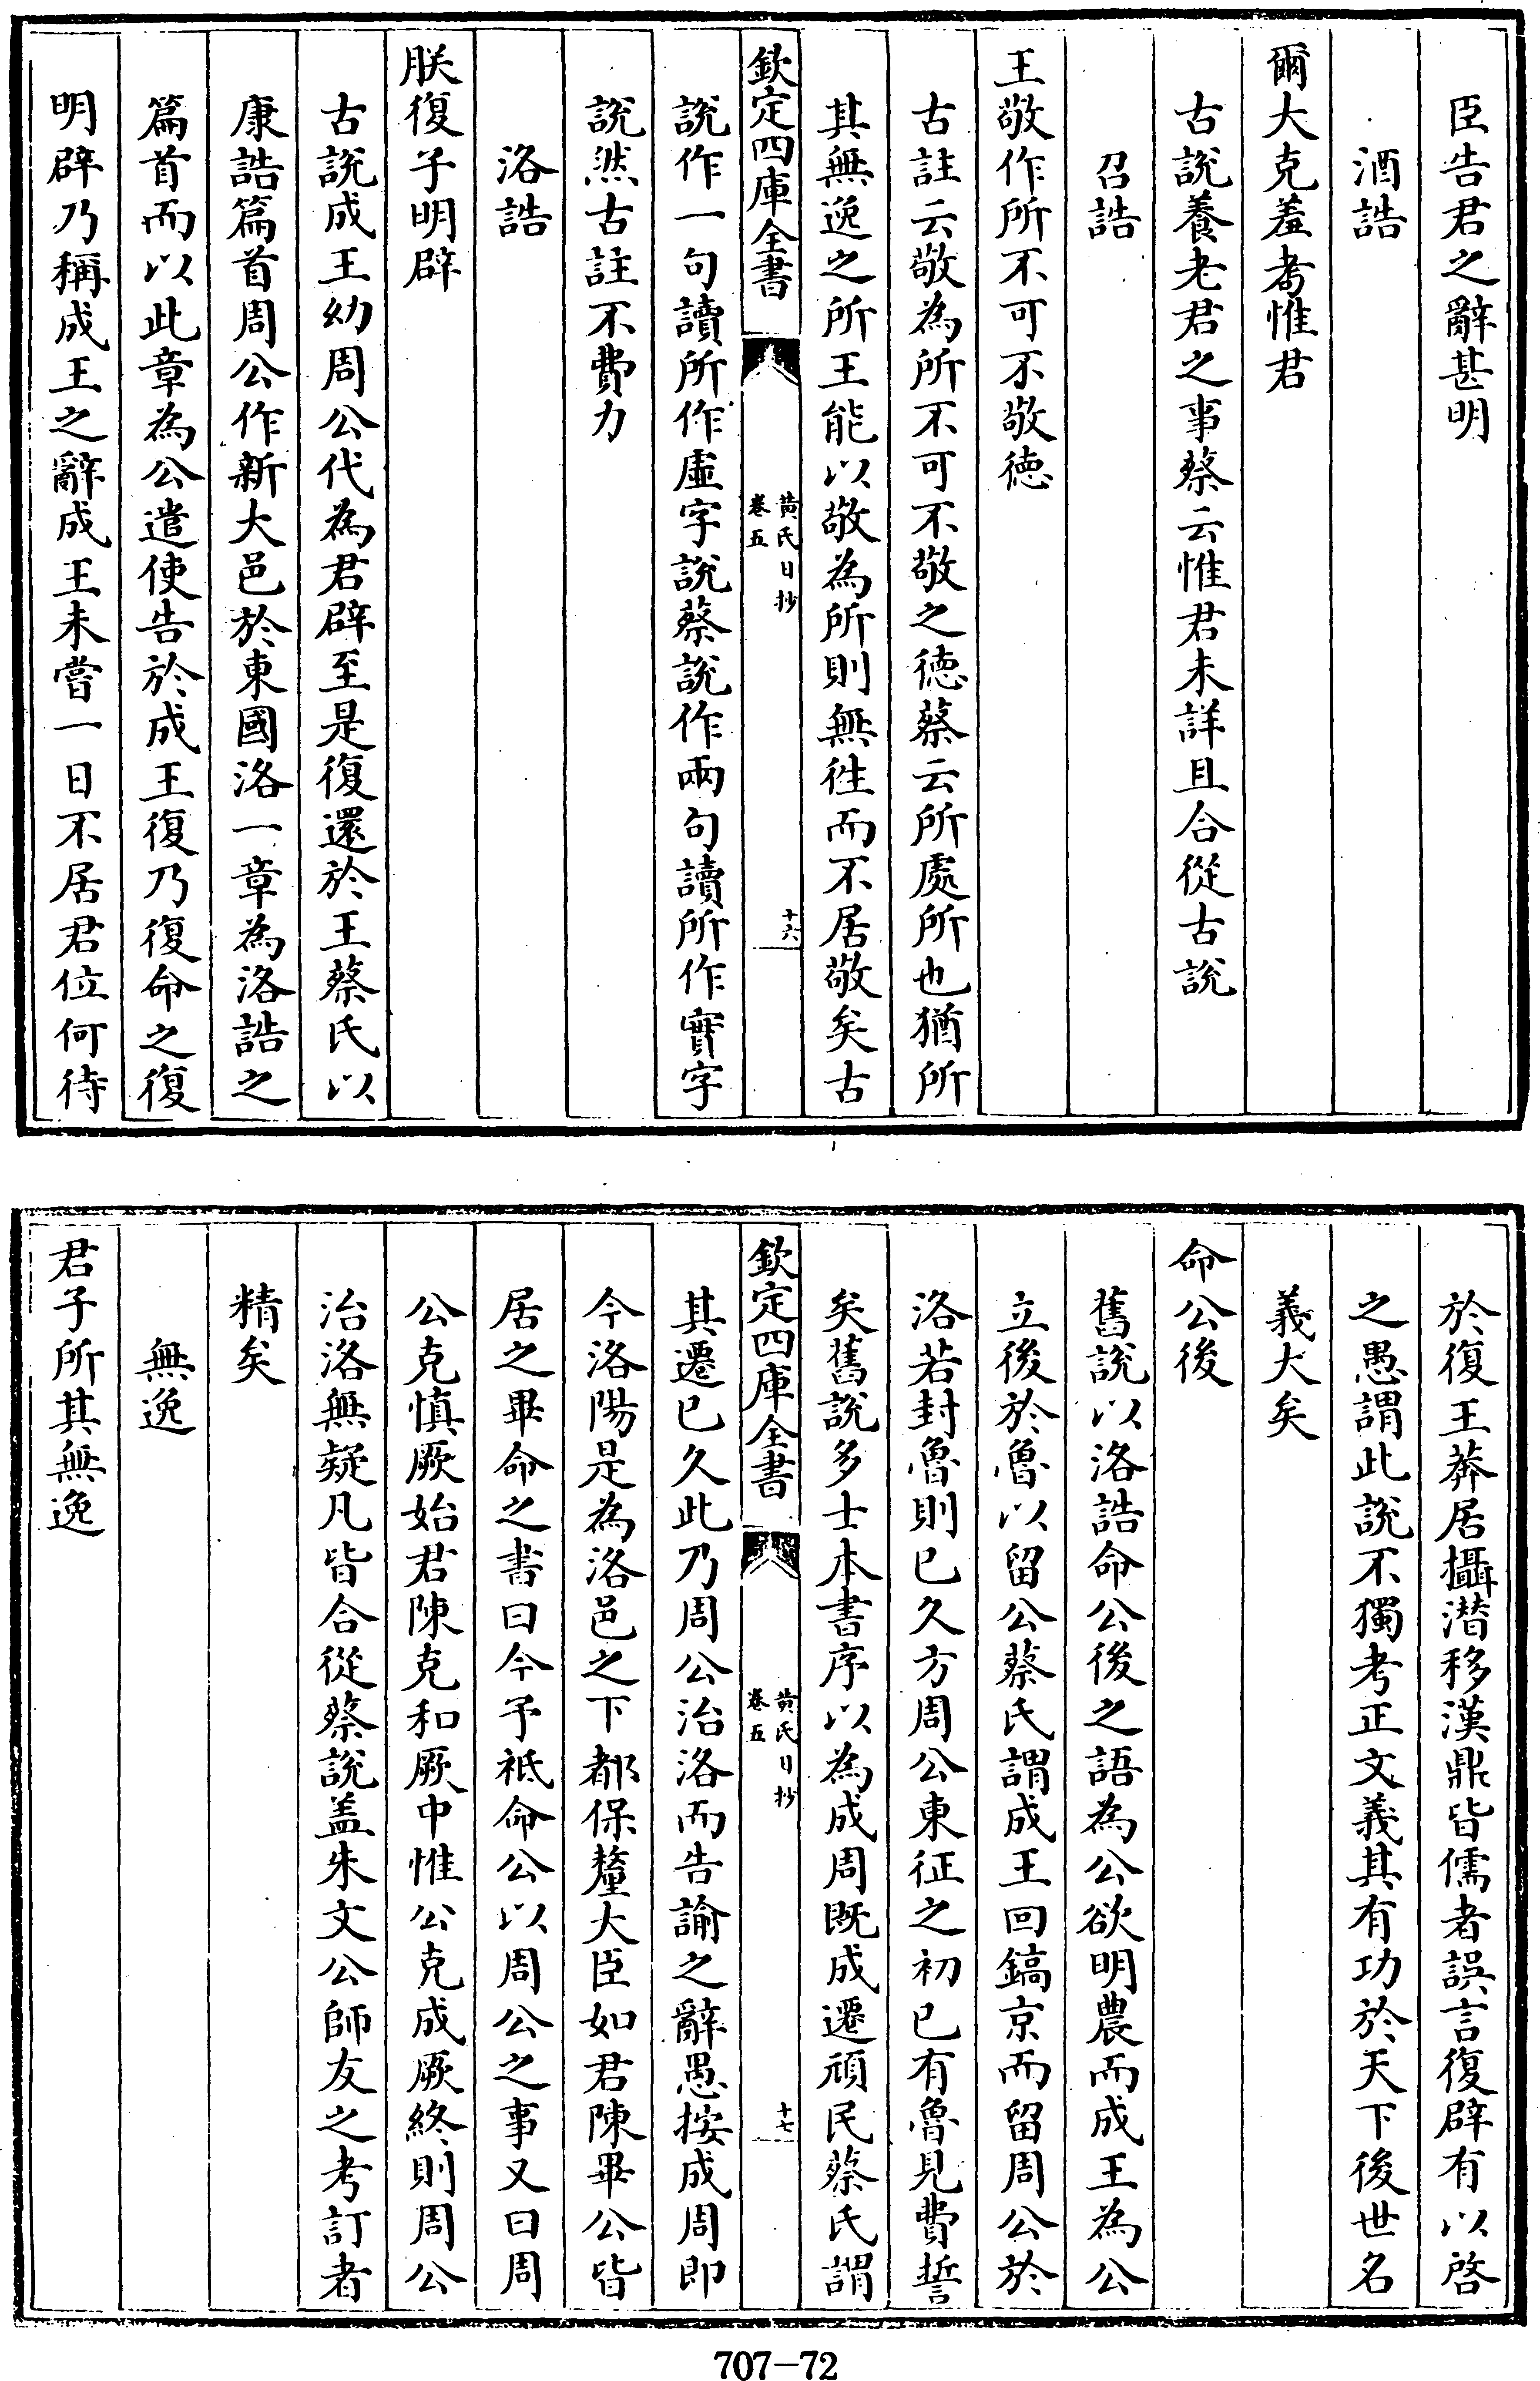 臣告君之辭甚明
酒誥
爾大克羞耇惟君
古説養老君之事蔡云惟君未詳且合從古説
召誥
王敬作所不可不敬徳
古註云敬為所不可不敬之徳蔡云所處所也猶所
其無逸之所王能以敬為所則無徃而不居敬矣古
欽定四庫全書
黄氏日抄
卷五
十六
説作一句讀所作虛字説蔡説作兩句讀所作實字
説然古註不費力
洛誥
朕復子明辟
古説成王幼周公代為君辟至是復還於王蔡氏以
康誥篇首周公作新大邑於東國洛一章為洛誥之
篇首而以此章為公遣使告於成王復乃復命之復
明辟乃稱成王之辭成王未嘗一日不居君位何待
於復王莽居攝潜移漢鼎皆儒者誤言復辟有以啓
之愚謂此説不獨考正文義其有功於天下後世名
義大矣
命公後
舊説以洛誥命公後之語為公欲明農而成王為公
立後於魯以留公蔡氏謂成王回鎬京而留周公於
洛若封魯則已久方周公東征之初已有魯見費誓
矣舊説多士本書序以為成周既成遷頑民蔡氏謂
欽定四庫全書
黄氏日抄
卷五
十七
其遷已久此乃周公治洛而告諭之辭愚按成周即
今洛陽是為洛邑之下都保釐大臣如君陳畢公皆
居之畢命之書曰今予祗命公以周公之事又曰周
公克慎厥始君陳克和厥中惟公克成厥終則周公
治洛無疑凡皆合從蔡説盖朱文公師友之考訂者
精矣
無逸
君子所其無逸
707-72